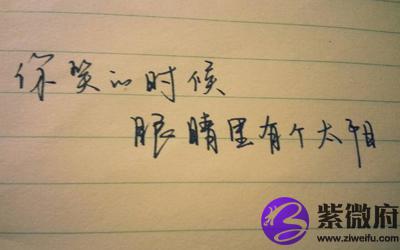 你笑的时候
眼睛里有个太阳
紫微府
www.ziweifu.com